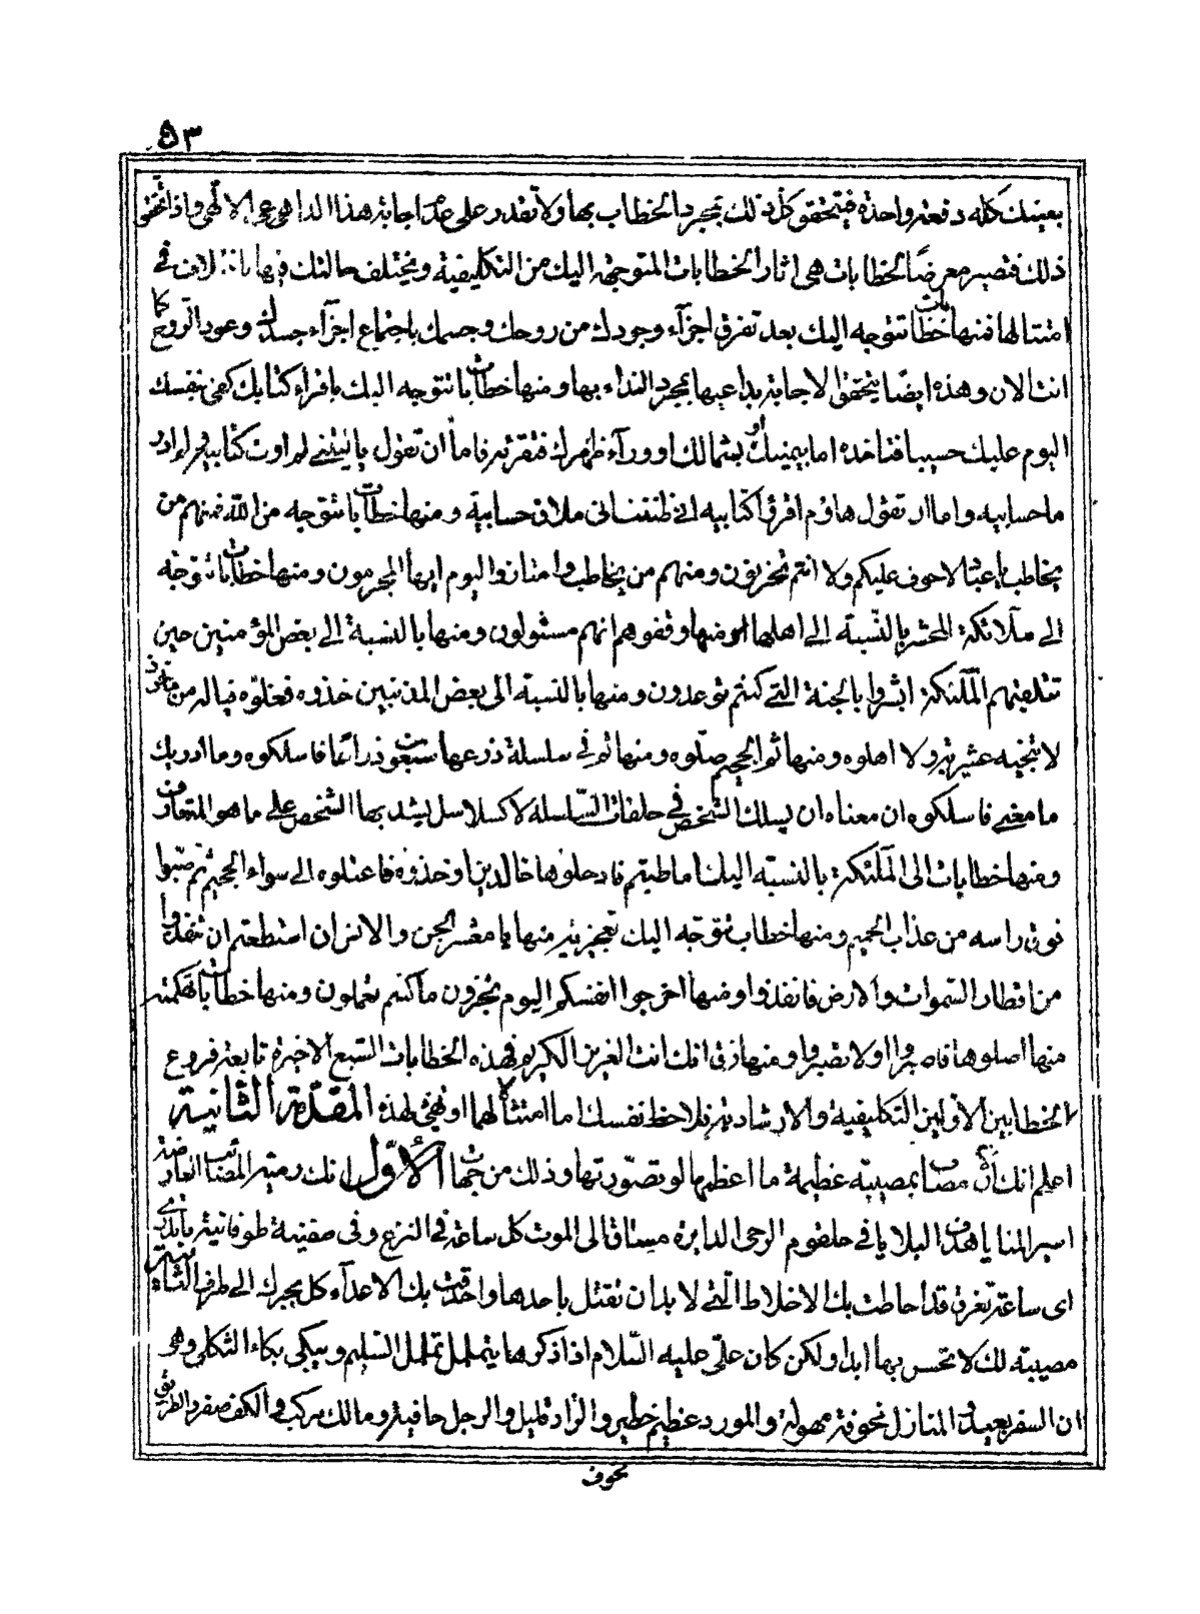 ٥٣
بعينك كله دفعة واحدة فيتحقق كل ذلك بمجرد الخطاب بها ولا تقدر على عدم اجابة هذا الداعي عو الالهي واذا تحقق
ذلك فتصير معرضًا لخطابات هي اثار الخطابات المتوجهة اليك من التكليفية ويختلف حالتك فيها في
امتثالها فمنها خطابات تتوجه اليك بعد تفرق اجزآء وجودك من روحك وجسمك باجتماع اجزآء جسدك وعود الروح كما
انت الآن وهذه ايضًا يتحقق الاجابة بداعيها بمجرد النداء بها ومنها خطابات تتوجه اليك باقراء كتابك كفى بنفسك
اليوم عليك حسيبا فتاخذه اما بيمينك او بشمالك او ورآء ظهرك فتقرئه فاما ان تقول يا ليتني لم اوت كتابيه ولم ادر
ما حسابيه واما ان تقول هاؤم اقرؤا كتابيه اني ظننت اني ملاق حسابية ومنها خطابات تتوجه من الله فمنهم من
يخاطب يا عباد لا خوف عليكم ولا انتم تحزنون ومنهم من يخاطب وامتازوا اليوم ايها المجرمون ومنها خطابات توجّه
الى ملآئكة المحشر بالنّسبة الى اهلها منها وقفوهم انهم مسئولون ومنها بالنسبة الى بعض المؤمنين حين
تتلقيهم الملئكة ابشروا بالجنة التي كنتم توعدون ومنها بالنسبة الى بعض المذنبين خذوه فغلوه فياله من ماخوذ
لا تنجيه عشيرته ولا اهلوه ومنها ثم الجحيم صلّوه ومنها ثم في سلسلة ذرعها سبعون ذراعًا فاسلكوه وما ادريك
ما معنى فاسلكوه ان معناه ان يسلك الشخص في حلقات السّلسلة لا كسلاسل يشد بها الشخص على ما هو المتعارف
ومنها خطابات الى الملئكة بالنسبة اليك اما طبتم فادخلوها خالدين او خذوه فاعتلوه الى سواء الجحيم ثم صبّوا
فوق راسه من عذاب الحميم ومنها خطاب توجّه اليك تعجيزية منها يا معشر الجن والانس ان استطعتم ان تنفذوا
من اقطار السّموات والارض فانفذوا ومنها اخرجوا انفسكم اليوم تجزون ما كنتم تعملون ومنها خطابات تهكمية
منها اصلوها فاصبروا اولا تصبروا ومنها ذق انك انت العزيز الكريم فهذه الخطابات السّبع الاخيرة تابعة فروع
الخطابين الاولين التكليفية والارشادية فلاحظ نفسك اما امتثالهما او تهيئ لهذه المقدّمة الثانية
اعلم انك الآن مصاب بمصيبة عظيمة ما اعظمها لو تصوّرتها وذلك من جهات الاوّل انك رمية المصائب العارضة
اسير المنايا هدف البلايا في حلقوم الرحى الدايرة مساق الى الموت كل ساعة في النزع وفى سفينة طوفانية بايدى
اى ساعة تغرق قد احاطت بك الاخلاط الّتي لا بد ان تقتل باحدها واحدقت بك الاعدآء كل يجرك الى طرف الثانية
مصيبة لك لا تحس بها ابدا ولكن كان عليّ عليه السّلام اذا ذكرها يتململ تململ السّليم ويبكي بكاء الثكلى وهو
ان السفر بعيد والمنازل مخوفة مهولة والمورد عظيم خطير والزاد قليل والرجل حافية ومالك مركب والكف صفر والطريق
مخوف